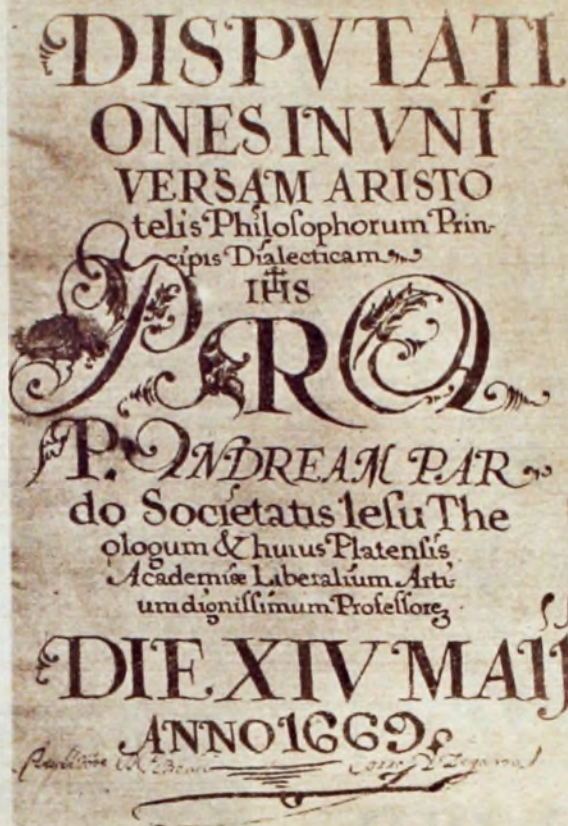 DISPVTATI
ONES IN VNI
VERSAM ARISTO
telis Philoſophorum Prin-
cipis Dialecticam
IHS
PRO
P. ANDREAM PAR
do Societatis Ieſu The
ologum & huius Platenſis
Academiæ Liberalium Arti-
um digniſſimum Profeſſorē
DIE XIV MAIJ
ANNO 1669